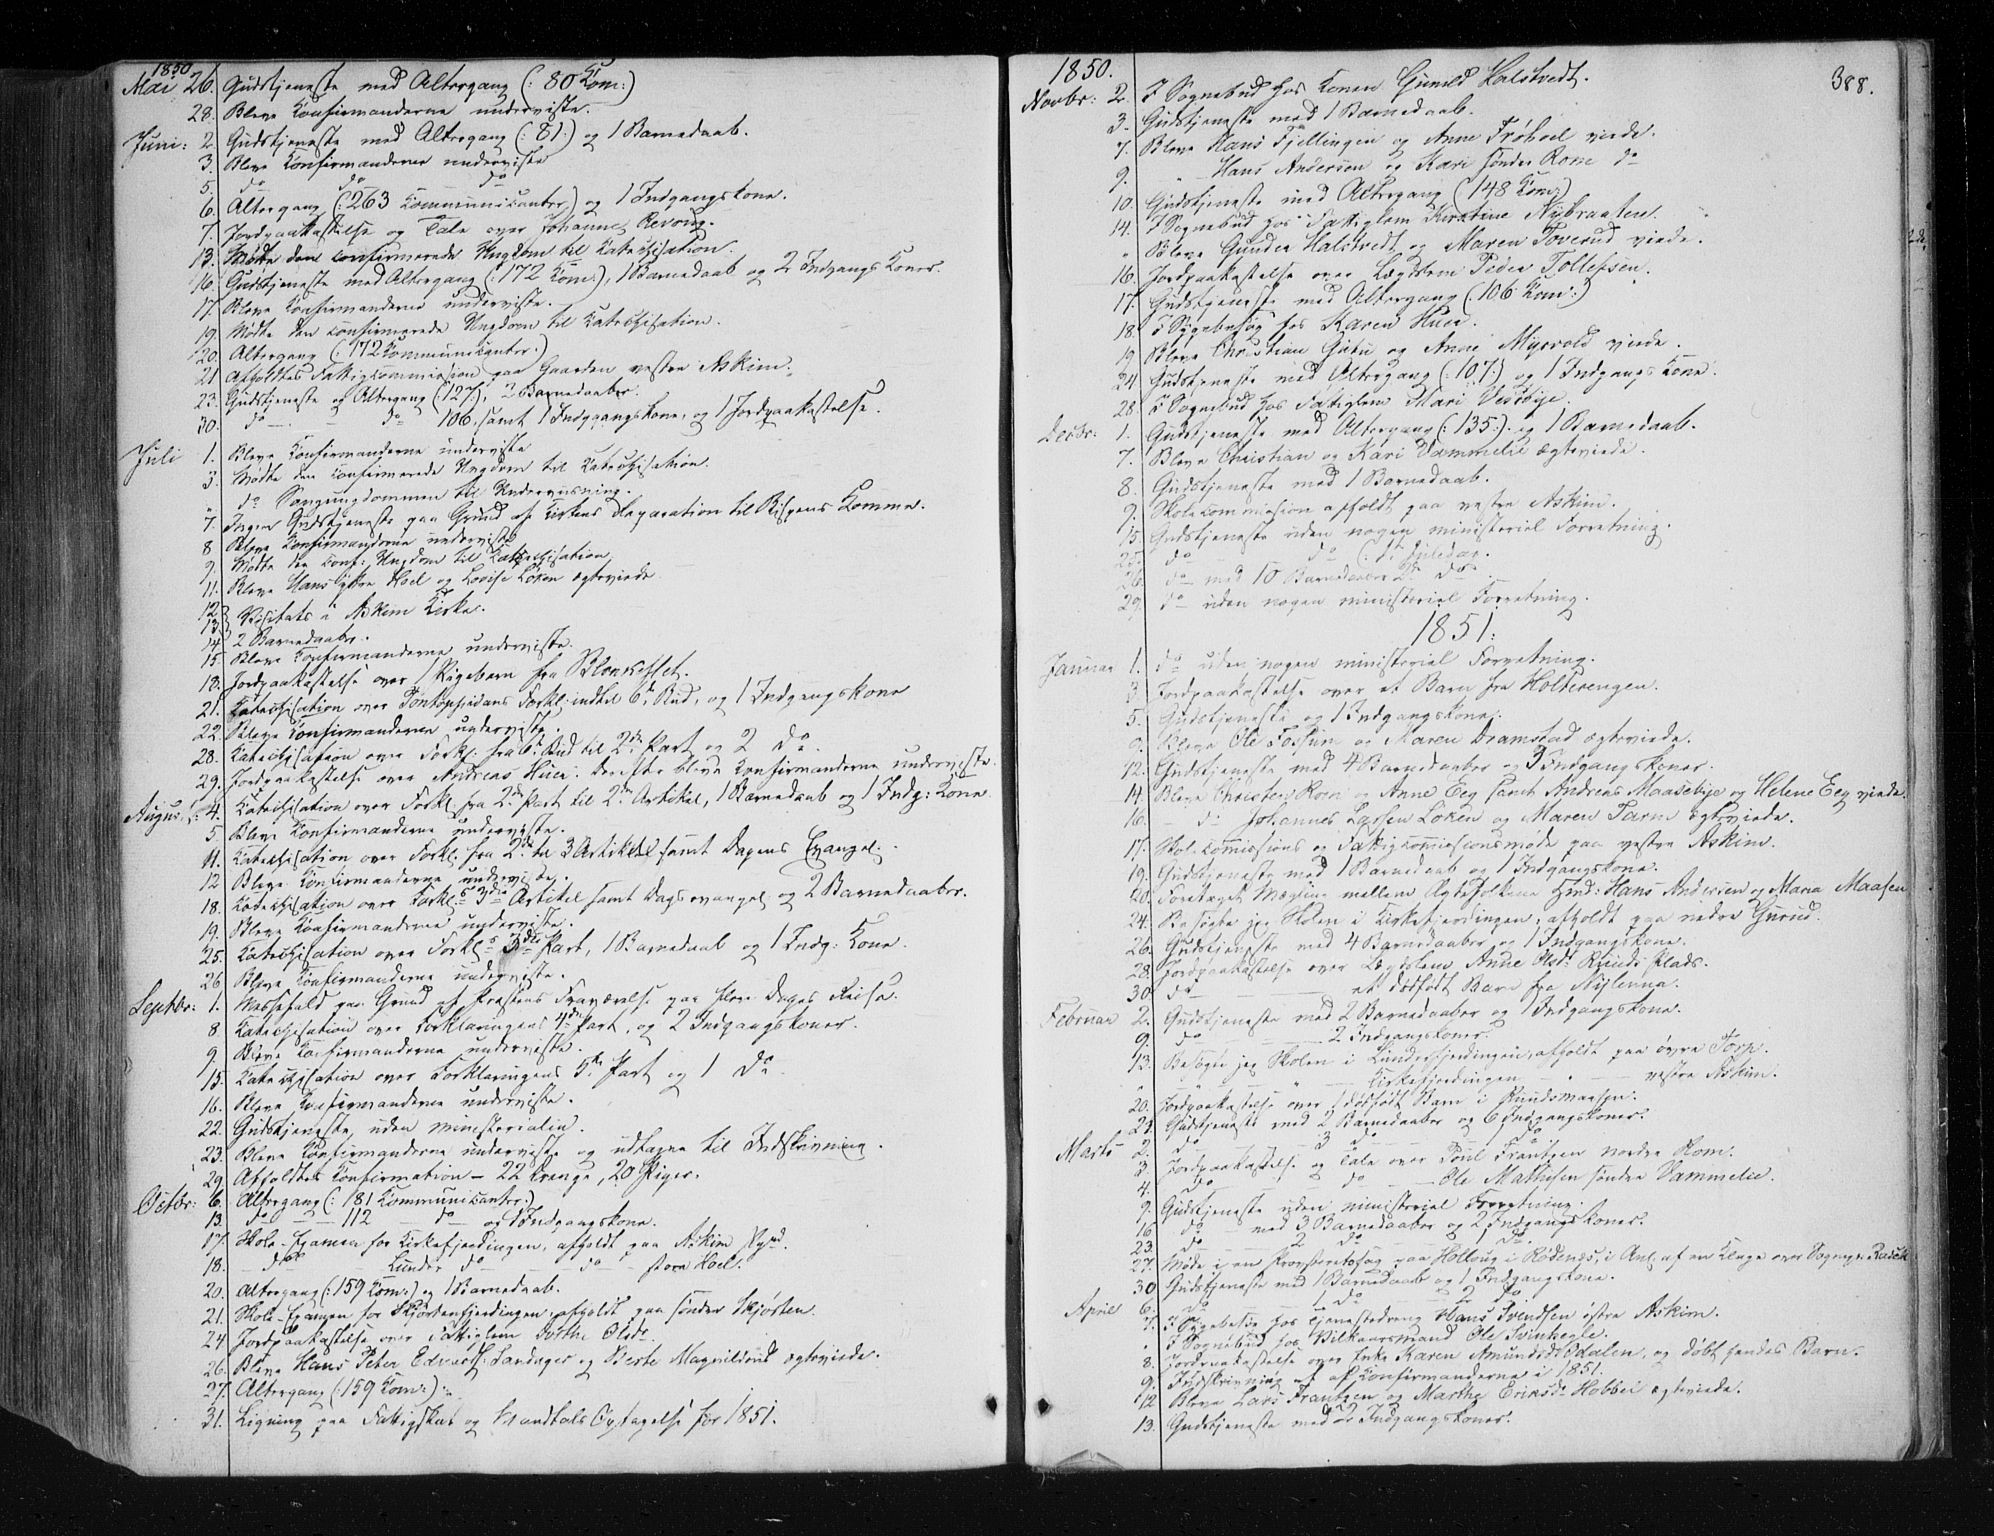 1850
Mai 26. Gudstjeneste med Altergang (: 80 Kom:)
28. Bleve Konfirmanderne underviste.
Juni: 2. Gudstjeneste med Altergang (: 81:) og 1 Barnedaab.
3. Bleve Konfirmanderne underviste
5. do do do
6. Altergang (: 263 Communicanter) og 1 Indgangskone.
7. Jordpaakastelse og Tale over Johannes Revoug.
13. Mødte den confirmerede Ungdom til Katechisation.
16. Gudstjeneste med Altergang (: 172 Kom:), 1 Barnedaab og 2 Indgangs Koner.
17. Bleve Konfirmanderne underviste.
19. Mødte den confirmerede Ungdom til Katechisation.
20. Altergang (: 172 Kommunicanter.)
21 Afholdtes Fattigcommission paa Gaarden vestre Askim.
23. Gudstjeneste og Altergang (: 127:), 2 Barnedaaber.
30. do do 106, samt 1 Indgangskone, og 1 Jordpaakastelse.
Juli 1. Bleve Konfirmanderne underviste
3. Mødte den Confirmerede Ungdom til Katechisation.
" do Sangungdommen til Undervisning.
7. Ingen Gudstjeneste paa Grund af Kirkens Reparation til Bispens Komme.
8 Bleve Konfirmanderne underviste
9. Mødte den Conf: Ungdom til Katechisation
11. Bleve Hans Hoel og Lovise Løken egteviede
12. } Visitats i Askim Kirke.
13. }
14. 2 Barnedaaber.
15. Bleve Confirmanderne underviste.
18. Jordpaakastelse over 1 Pigebarn fra
21. Katechisation over Pontoppidans Forkl. indtil 6te Bud, og 1 Indgangskone
22. Bleve Confirmanderne underviste.
28. Katechisation over Forkl. fra 6te Bud til 2den Part og 2 do.
29. Jordpaakastelse over Andreas Huer. Derefter bleve Konfirmanderne underviste.
August: 4. Katechisation over Forkl. fra 2den Part til 2den Artikel, 1 Barnedaab og 1 Indg: Kone
5 Bleve Konfirmanderne underviste.
11. Katechisation over Forkl. fra 2den til 3 Artikel samt Dagens Evangel.
12 Bleve Konfirmanderne underviste.
18. Katechisation over Forkl.s 3die Artikel samt Dagsevangel og 2 Barnedaaber.
19. Bleve Konfirmanderne underviste.
25. Katechisation over Forkl.s 3die Part, 1 Barnedaab og 1 Indg: Kone.
26 Bleve Konfirmanderne underviste.
Septbr: 1. Messefald paa Grund af Præstens Fraværelse paa flere Dages Reise.
8. Katechisation over Forklaringens 4de Part, og 2 Indgangskoner.
9 Bleve Konfirmanderne underviste.
15. Katechisation over Forklaringens 5te Part og 1 Do
16. Bleve Konfirmanderne underviste.
22. Gudstjeneste, uden Ministerialia.
23. Bleve Konfirmanderne underviste og udtagne til Indskrivning.
29. Afholdtes Confirmation – 22 Drenge, 20 Piger.
Octbr: 6. Altergang (: 81 Kommunicanter:)
13. do – 112 do – og 1 Indgangskone.
17. Skole-Examen for Kirkefjerdingen, afholdt paa Askim
18. – do – Lunder do – do – store Hoel.
20. Altergang (: 159 Kom:) og 1 Barnedaab.
21. Skole-Examen for Skjørtenfjerdingen, afholdt paa søndre Skjørten
24 Jordpaakastelse over Fattiglem Dorthe Olsdr
26. Bleve Hans Peter Edvards. Sandager og Berte Magnildsrud egteviede.
27. Altergang (: 159 Kom:):
31. Ligning paa Fattigskat og Mandtals Optagelse for 1851.
388.
1850.
Novbr: 2. I Sognebud hos Konen Gunild Halstvedt.
3. Gudstjeneste med 1 Barnedaab.
7. Bleve Hans Fjellingen og Anne Frøhoel viede.
9. " – Hans Andersen og Kari søndre Rom do
10. Gudstjeneste med Altergang (148 Kom:)
14. I Sognebud hos Fattiglem Kirstine Nybraaten.
" Bleve Gunder Halstvedt og Maren Toverud viede.
16. Jordpaakastelse over Lægdslem Peder Tollefsen.
17. Gudstjeneste med Altergang (: 106 Kom:)
18. I Sygebesøg hos Karen Huer.
19 Bleve Christian Gutu og Anne Myrvold viede.
24 Gudstjeneste med Altergang (: 107:) og 1 Indgangs Kone.
28. I Sognebud hos Fattiglem Mari
Decbr: 1. Gudstjeneste med Altergang (: 135:) og 1 Barnedaab.
7. Bleve Christian og Kari Vammelie egteviede.
8. Gudstjeneste med 1 Barnedaab.
9. Skolekommission afholdt paa vestre Askim.
15. Gudstjeneste uden nogen ministeriel Forretning.
25. do do (: 1ste Juledag.
26. do med 10 Barnedaaber 2den do
29. do uden nogen ministeriel Forretning.
1851:
Januar 1. do uden nogen ministeriel Forretning.
3 Jordpaakastelse over et Barn fra Holterengen.
5. Gudstjeneste og 1 Indgangskone.
9. Bleve Ole Fossum og Maren Dramstad egteviede.
12. Gudstjeneste med 4 Barnedaaber og 3 Indgangskoner.
14. Bleve Christen Rom og Anne Eeg samt Andreas Maasebye og Helene Eeg viede.
16. – do Johannes Larsen Løken og Maren Tarm egteviede.
17. Skolekomissions og Fattigkomissionsmøde paa vestre Askim.
19. Gudstjeneste med 1 Barnedaab og 1 Indgangskone.
20. Foretaget Mægling mellem Egtefolkene Hans Andersen og Maria Maasen
24. Besøgte jeg Skolen i Kirkefjerdingen, afholdt paa nedre Gurud.
26. Gudstjeneste med 4 Barnedaaber og 1 Indgangskone.
28. Jordpaakastelse over Lægdslem Anne Olsdr. Ruuds Plads.
30. do – – – et dødfødt Barn fra Nylenna.
Februar 2. Gudstjeneste med 2 Barnedaaber og 1 Indgangskone.
9 do – 2 Indgangskoner.
13. Besøgte jeg Skolen i Lunderfjerdingen, afholdt paa øvre Torp.
" – Kirkefjerdingen " – vestre Askim.
20. Jordpaakastelse over 1 dødfødt Barn i Ruudsmarken.
23. Gudstjeneste med 2 Barnedaaber og 6 Indgangskoner.
Marts 2. do – 3 do – do
3. Jordpaakastelse og Tale over Poul Frantzen nordre Rom.
4. do – do – Ole Mathisen søndre Vammelie.
9. Gudstjeneste uden ministeriel Forretning.
16 do – med 3 Barnedaaber og 2 Indgangskoner.
23. do – 2 do 1 do
27. Møde i en Provsteretssag paa i Rødenes, i Anl. af en Klage over Sognepr.
30 Gudstjeneste med 1 Barnedaab og 1 Indgangskone.
April 6. do – 1 do – 2 do
7. I Sygebesøg hos Tjenestedreng Hans Svendsen østre Askim.
" I Sognebud hos Vilkaarsmand Ole Svinhegle.
8. Jordpaakastelse over Enke Karen Amundsdr Odalen, og døbt hendes Barn.
9. Indskrivning af Konfirmanderne i 1851.
12 Bleve Lars Frantzen og Marthe Eriksdr Hobbel egteviede.
13. Gudstjeneste med 2 Indgangskoner.